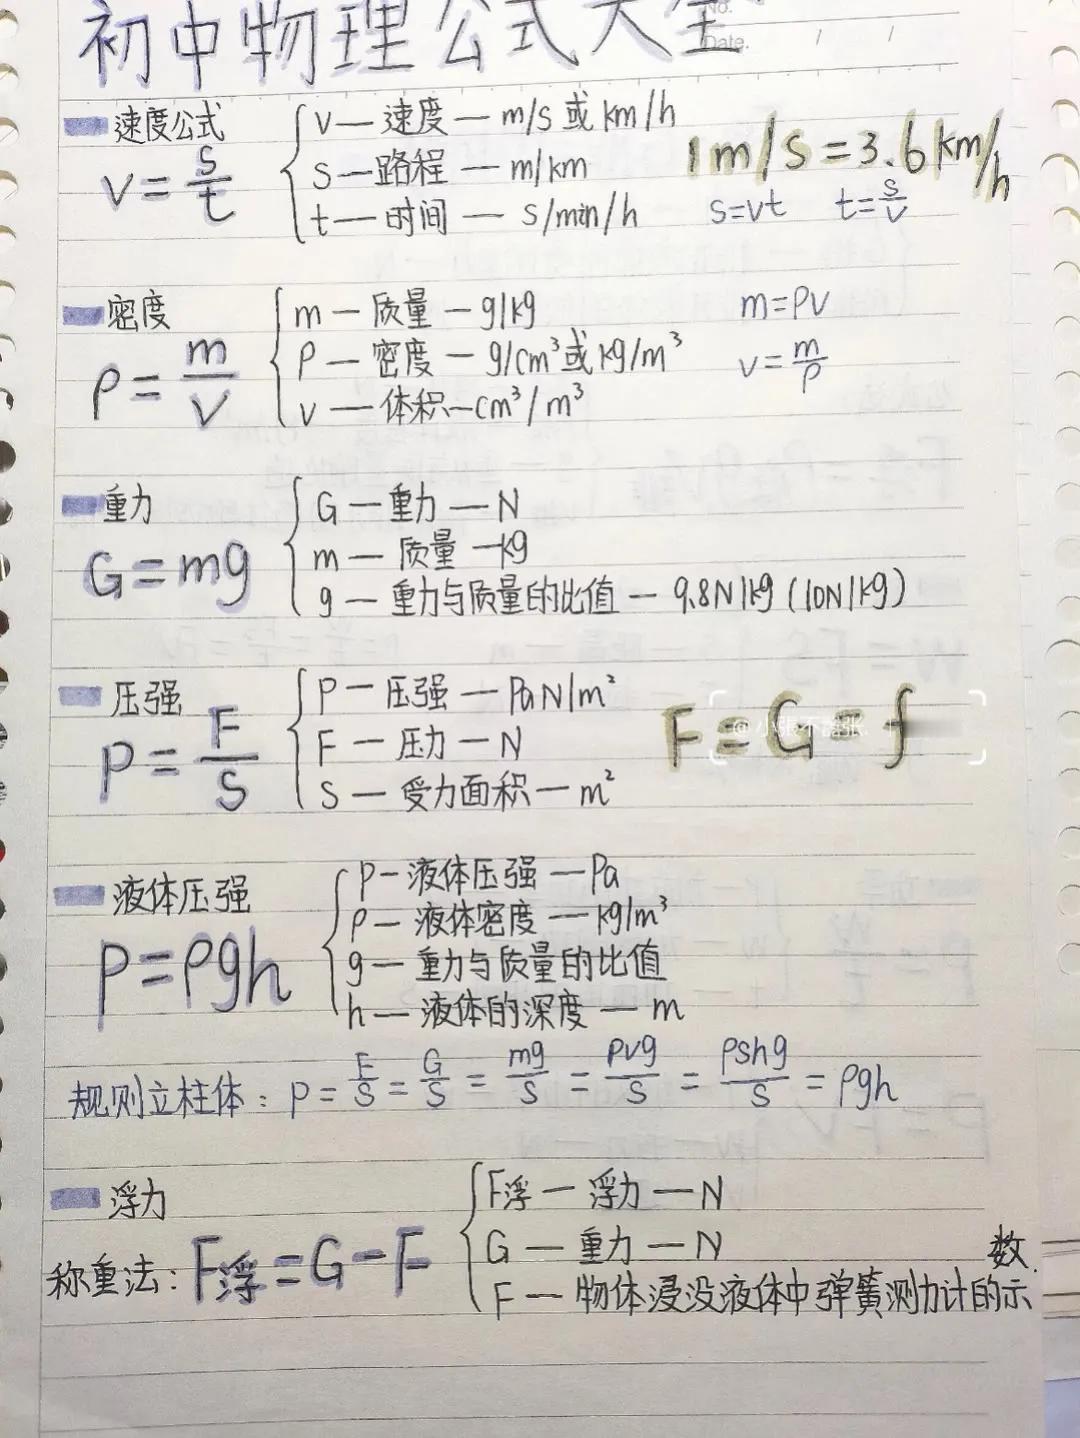 初中物理公式大全
No.
Date.
速度公式
v = s/t
v — 速度 — m/s 或 km/h
s — 路程 — m/km
t — 时间 — s/min/h
1m/s = 3.6km/h
s=vt t=s/v
密度
ρ = m/V
m — 质量 — g/kg
ρ — 密度 — g/cm³或kg/m³
v — 体积 — cm³/m³
m=ρv
v=m/ρ
重力
G = mg
G — 重力 — N
m — 质量 — kg
g — 重力与质量的比值 — 9.8N/kg (10N/kg)
压强
P = F/S
P — 压强 — Pa N/m²
F — 压力 — N
S — 受力面积 — m²
F = G = f
液体压强
P = ρgh
P — 液体压强 — Pa
ρ — 液体密度 — kg/m³
g — 重力与质量的比值
h — 液体的深度 — m
规则立柱体: P = F/S = G/S = mg/S = ρvg/S = ρshg/S = ρgh
浮力
称重法: F浮 = G - F
F浮 — 浮力 — N
G — 重力 — N
F — 物体浸没液体中弹簧测力计的示数.